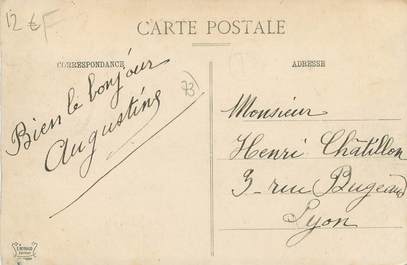 12 € F
CARTE POSTALE
CORRESPONDANCE
ADRESSE
Bien le bonjour
Augustine
73
Monsieur
Henri Châtillon
3 - rue Bugeaud
Lyon